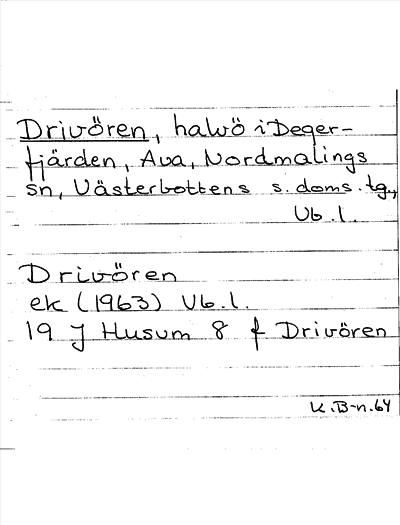 Drivören, halvö i Deger-
fjärden, Ava, Nordmalings
sn, Västerbottens s. doms. tg.,
Vb. l.
Drivören
ek (1963) Vb. l.
19 J Husum 8 f Drivören
K. B-n. 64